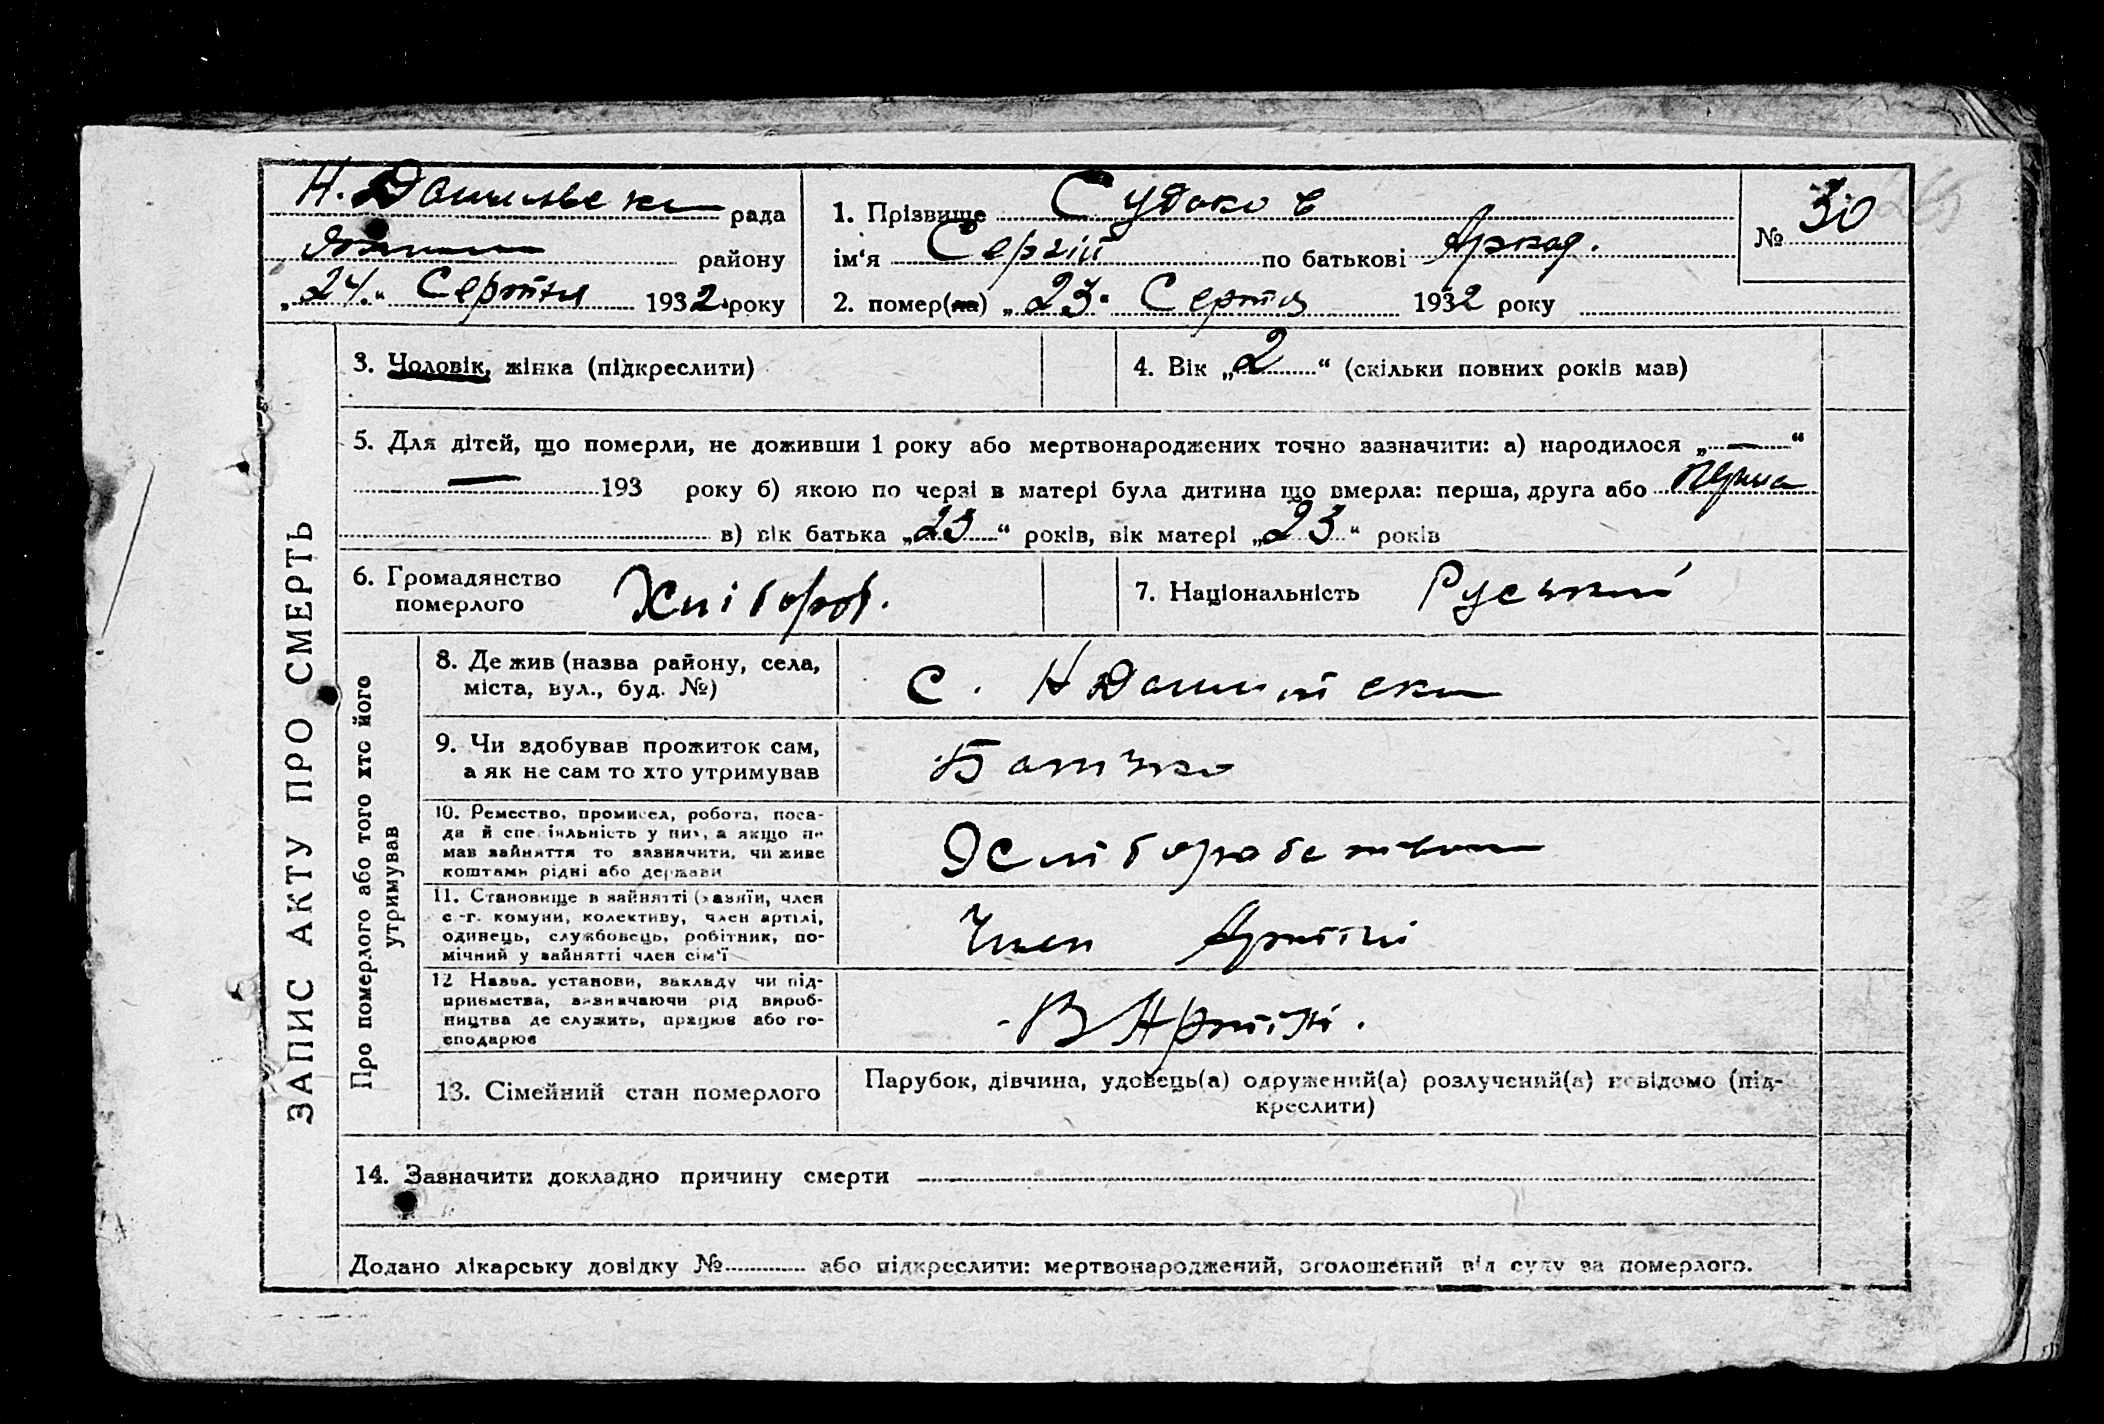 Н. Данилівська рада
району
„24.“ Серпня 1932 року
1. Прізвище Судаков
ім‘я Сергій по батькові Аркад.
2. помер(ла) „23“ Серпня 1932 року
№ 30
ЗАПИС АКТУ ПРО СМЕРТЬ
3. Чоловік, жінка (підкреслити)
4. Вік „2“ (скільки повних років мав)
5. Для дітей, що померли, не доживши 1 року або мертвонароджених точно зазначити: а) народилося „—“
— 193 року б) якою по черзі в матері була дитина що вмерла: перша, друга або перша
в) вік батька „23“ років, вік матері „23“ років
6. Громадянство
померлого
Хлібороб.
7. Національність Руський
Про померлого або того хто його
утримував
8. Де жив (назва району, села,
міста, вул., буд. №)
с. Н
9. Чи здобував прожиток сам,
а як не сам то хто утримував
Батько
10. Ремество, промисел, робота, поса-
да й спеціяльність у них, а якщо не
мав зайняття то зазначити, чи живе
коштами рідні або держави
11. Становище в зайнятті (хазяїн, член
с.-г. комуни, колективу, член артілі,
одинець, службовець, робітник, по-
мічний у зайнятті член сім‘ї
Член Артілі
12 Назва. установи, закладу чи під-
приємства, зазначаючи рід вироб-
ництва де служить, працює або го-
сподарює
В Артілі.
13. Сімейний стан померлого
Парубок, дівчина, удовець(а) одружений(а) розлучений(а) невідомо (під-
креслити)
14. Зазначити докладно причину смерти
Додано лікарську довідку № або підкреслити: мертвонароджений, оголошений від суду за померлого.